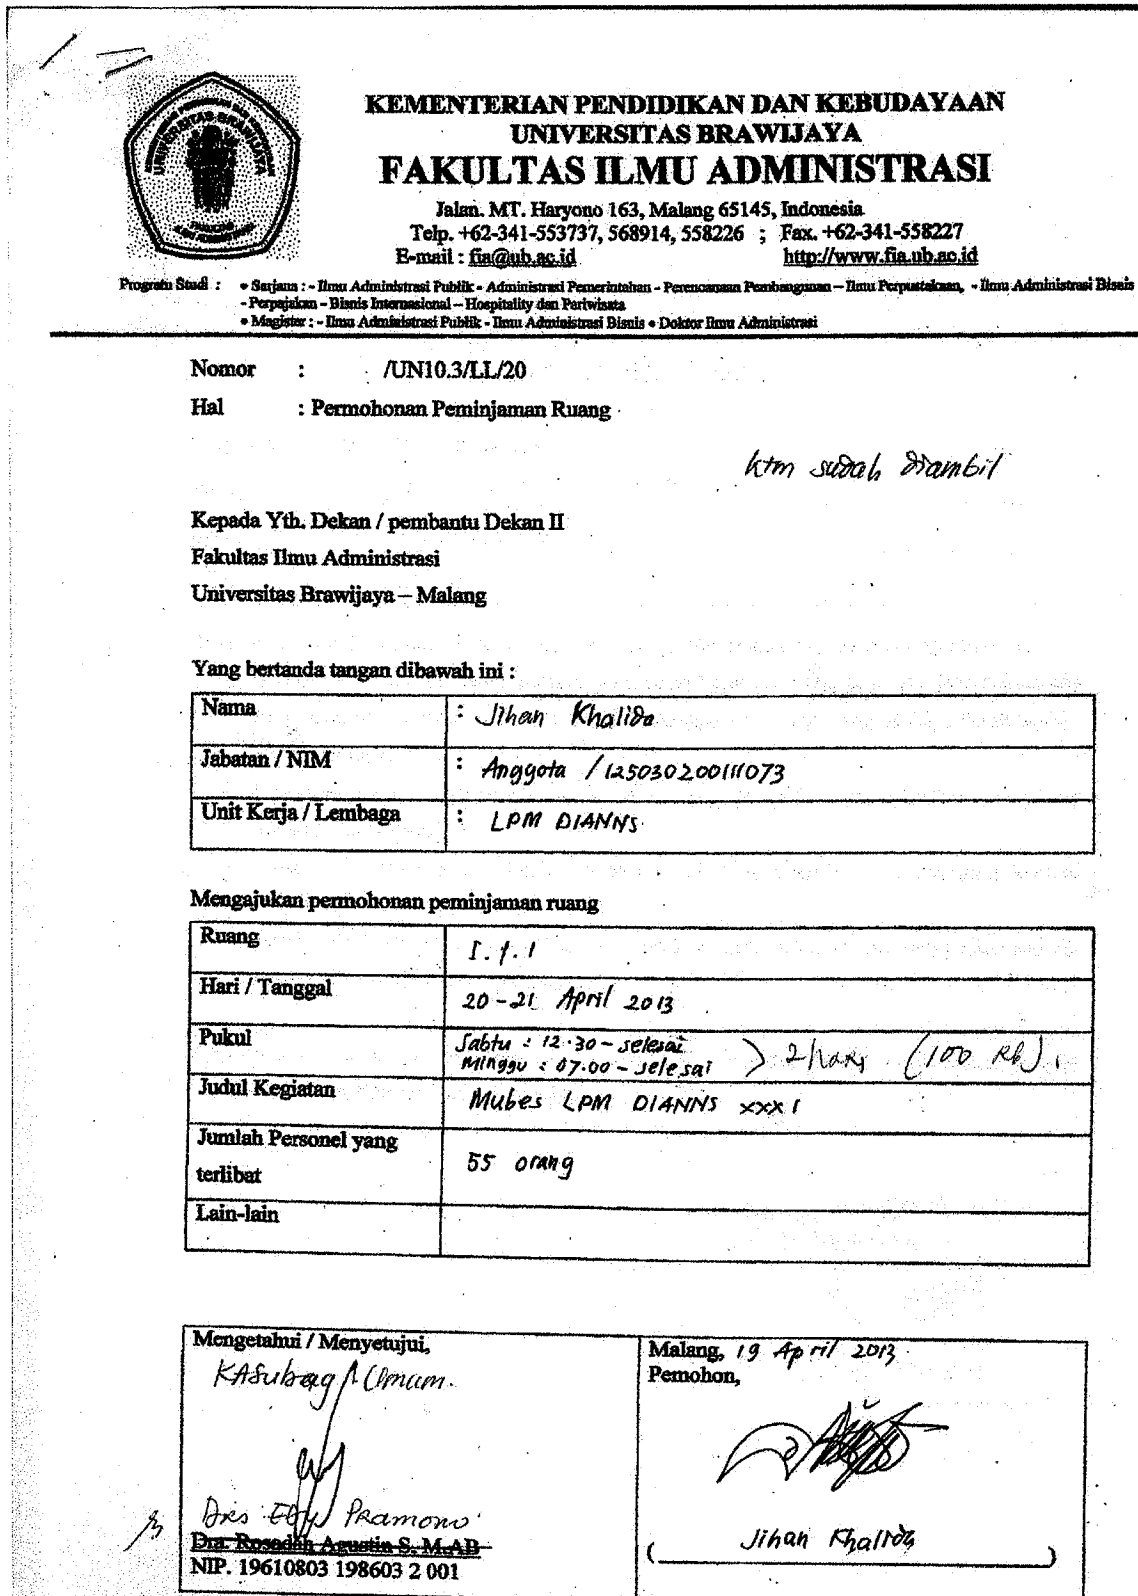 KEMENTERIAN PENDIDIKAN DAN KEBUDAYAAN
UNIVERSITAS BRAWIJAYA
FAKULTAS ILMU ADMINISTRASI
Jalan. MT. Haryono 163, Malang 65145, Indonesia
Telp. +62-341-553737, 568914, 558226 ; Fax. +62-341-558227
E-mail : fia@ub.ac.id http://www.fia.ub.ac.id
Program Studi : • Sarjana : - Ilmu Administrasi Publik - Administrasi Pemerintahan - Perencanaan Pembangunan – Ilmu Perpustakaan, - Ilmu Administrasi Bisnis
- Perpajakan – Bisnis Internasional – Hospitality dan Pariwisata
• Magister : - Ilmu Administrasi Publik - Ilmu Administrasi Bisnis • Doktor Ilmu Administrasi
UNIVERSITAS BRAWIJAYA
Nomor : /UN10.3/LL/20
Hal : Permohonan Peminjaman Ruang
ktm sudah diambil
Kepada Yth. Dekan / pembantu Dekan II
Fakultas Ilmu Administrasi
Universitas Brawijaya – Malang
Yang bertanda tangan dibawah ini :
Nama : Jihan Khalida
Jabatan / NIM : Anggota / 125030200111073
Unit Kerja / Lembaga : LPM DIANNS
Mengajukan permohonan peminjaman ruang
Ruang I.1.1
Hari / Tanggal 20-21 April 2013
Pukul Sabtu : 12.30 - selesai
Minggu : 07.00 - selesai > 2 hari (100 Rb).
Judul Kegiatan Mubes LPM DIANNS XXXI
Jumlah Personel yang
terlibat 55 orang
Lain-lain
Mengetahui / Menyetujui,
KASubag Umum.
Drs Edy Pramono
Dra. Rosadah Agustin S, M.AB
NIP. 19610803 198603 2 001
Malang, 19 April 2013
Pemohon,
( Jihan Khalida )